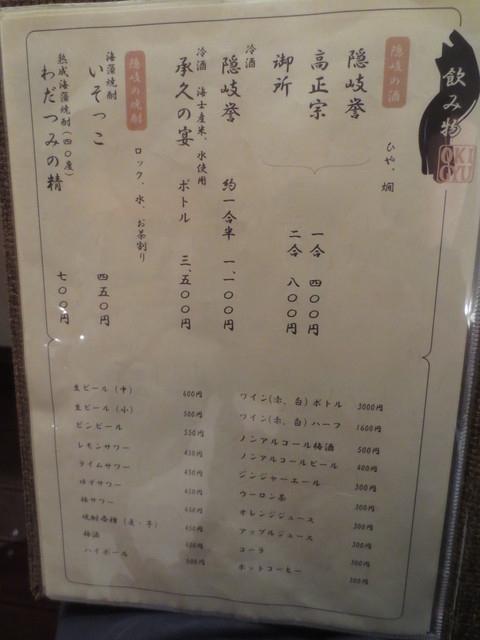 飲み物
OKI
GYU
隠岐の酒
ひや、燗
隠岐誉
高正宗
御所
一合 四〇〇円
二合 八〇〇円
冷酒
隠岐誉 約一合半 一、一〇〇円
冷酒 海士産米、水使用
承久の宴 ボトル 三、五〇〇円
隠岐の焼酎
ロック、水、お茶割り
海藻焼酎
いそっこ 四五〇円
熟成海藻焼酎(四〇度)
わだつみの精 七〇〇円
ワイン(赤、白)ボトル 3000円
ワイン(赤、白)ハーフ 1600円
ノンアルコール梅酒 500円
ノンアルコールビール 400円
ジンジャーエール 300円
ウーロン茶 300円
オレンジジュース 300円
アップルジュース 300円
コーラ 300円
ホットコーヒー 300円
生ビール(中) 600円
生ビール(小) 500円
ビンビール 550円
レモンサワー 450円
ライムサワー 450円
ゆずサワー 450円
梅サワー 450円
焼酎各種(麦・芋) 450円
梅酒
ハイボール